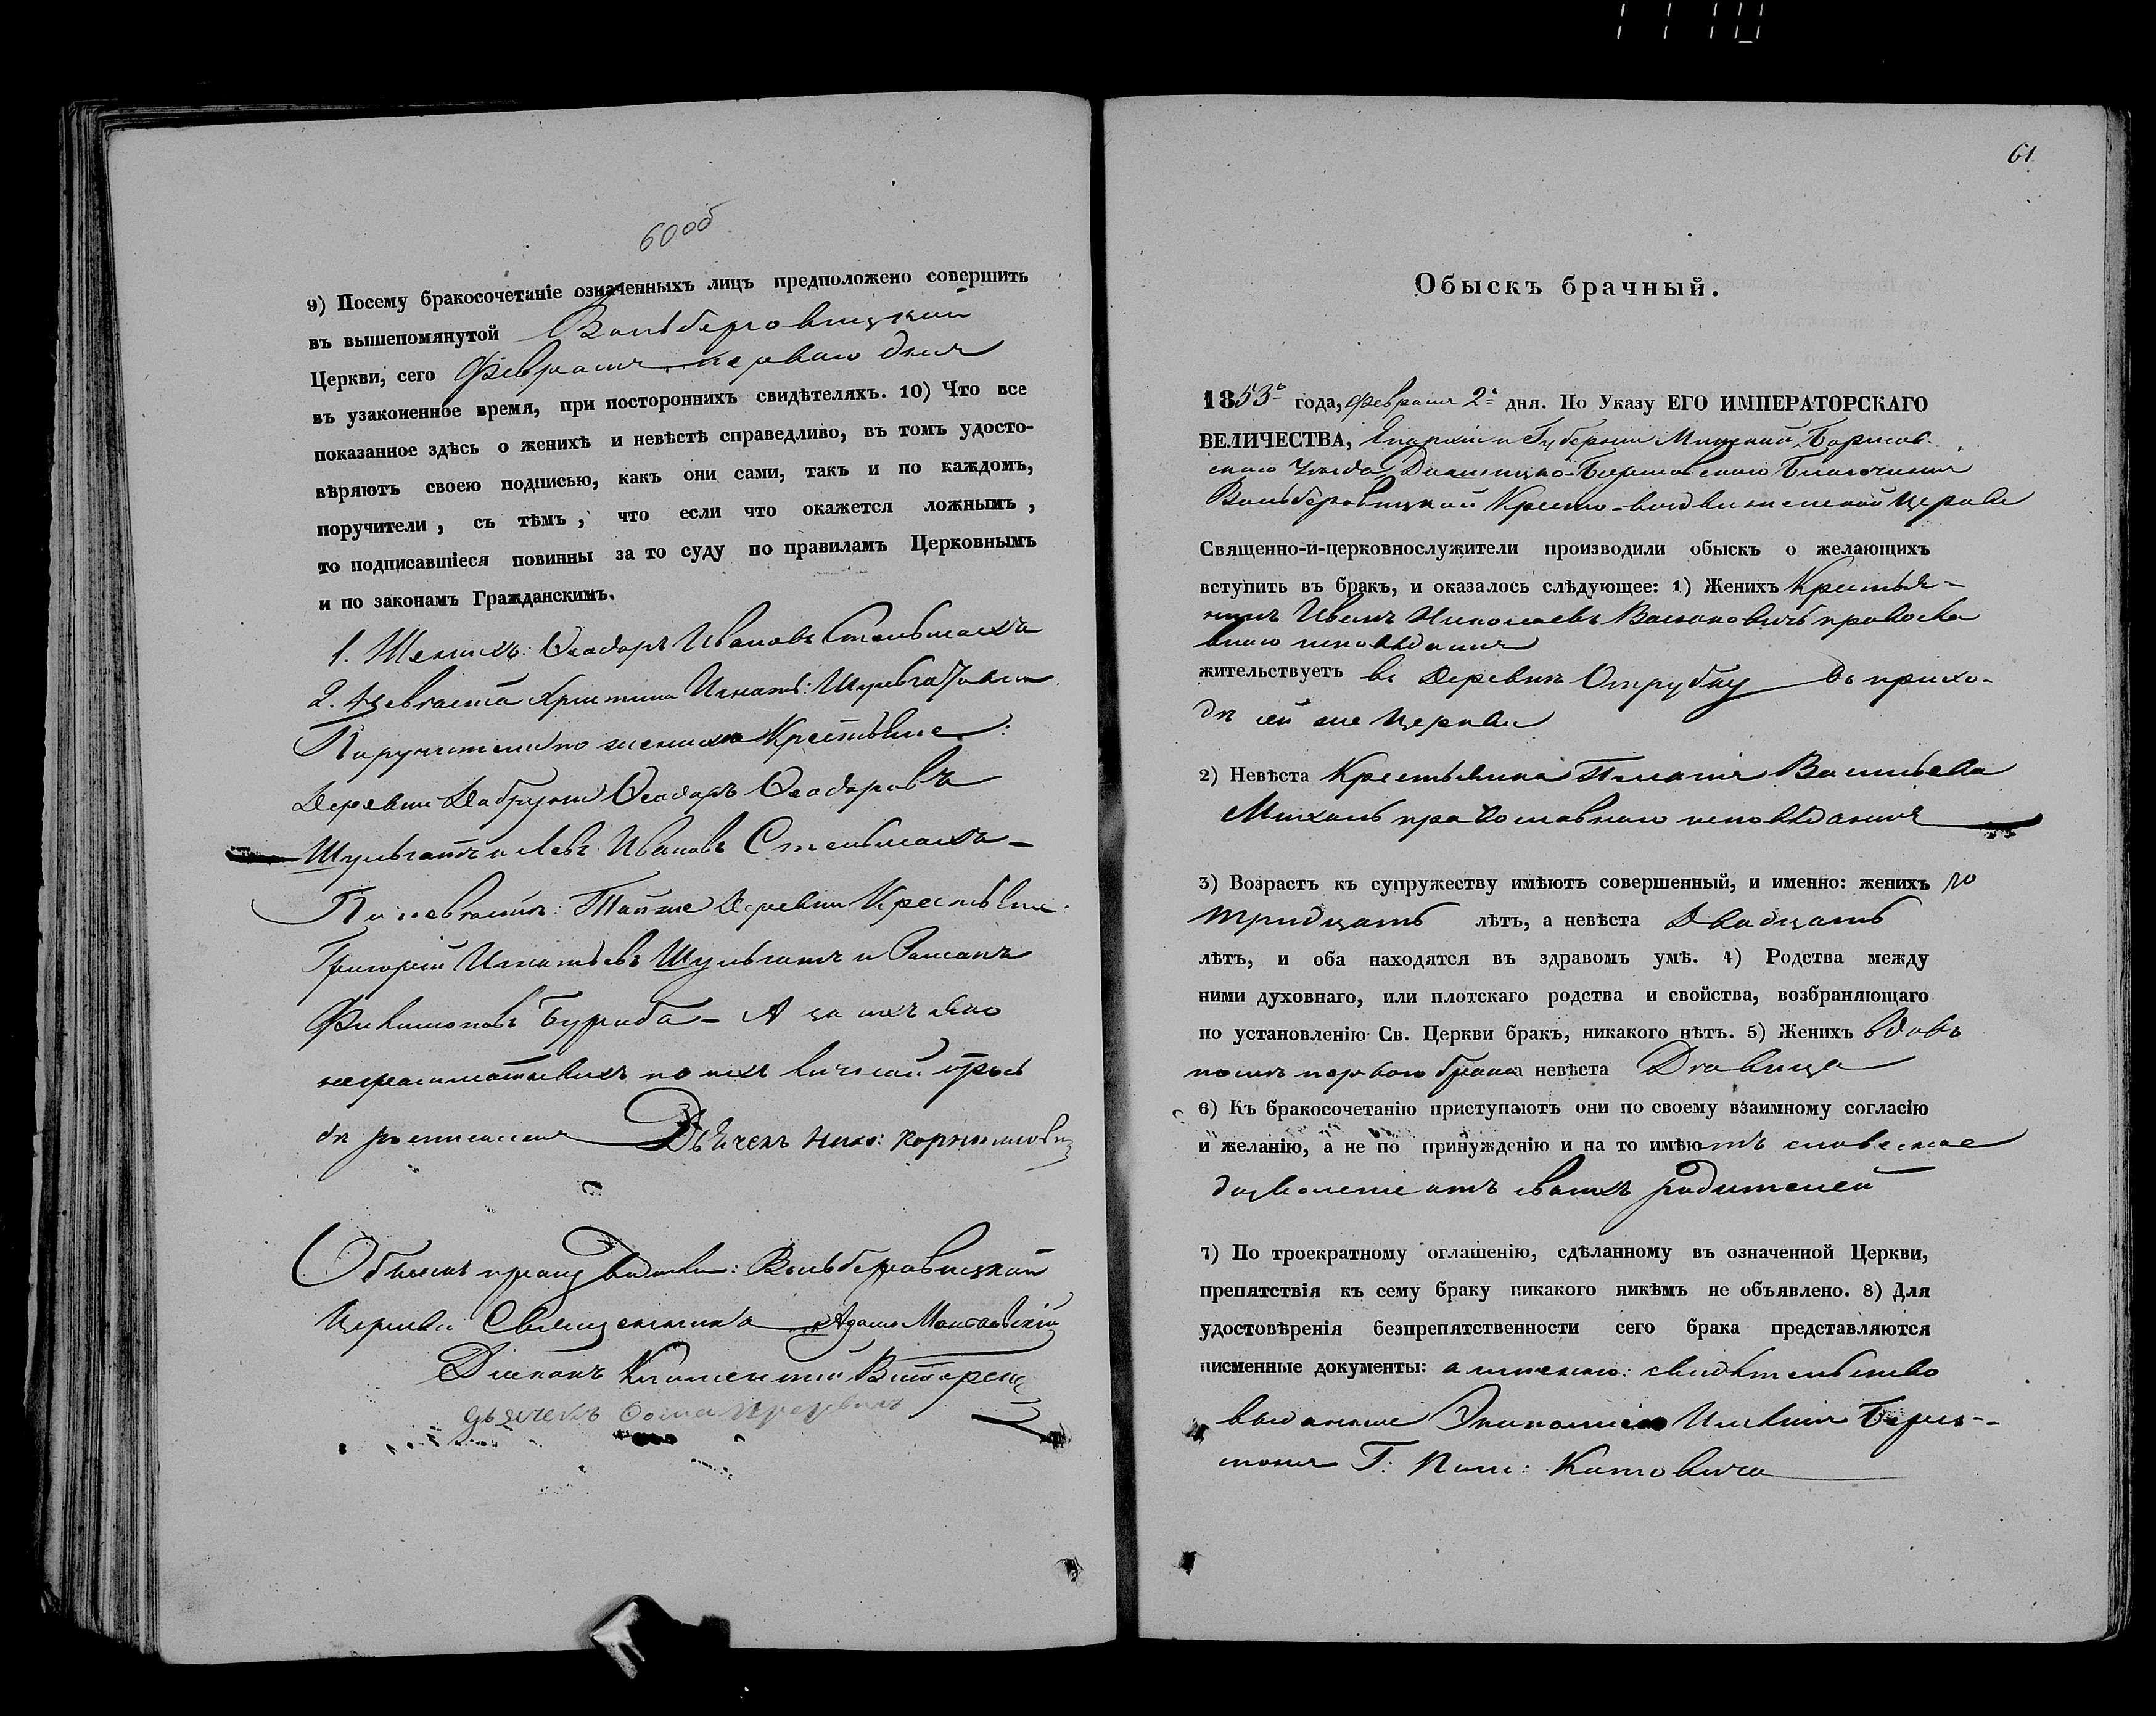 60об
9) Посему бракосочетаніе означенныхъ лицъ предположено совершить
въ вышепомянутой Вольберовицкой
Церкви, сего Февраля перваго дня
въ узаконенное время, при постороннихъ свидѣтеляхъ. 10) Что все
показанное здѣсь о женихѣ и невѣстѣ справедливо, въ томъ удосто-
вѣряютъ своею подписью, какъ они сами, такъ и по каждомъ,
поручители, съ тѣмъ, что если что окажется ложнымъ,
то подписавшіеся повинны за то суду по правиламъ Церковнымъ
и по законамъ Гражданскимъ.
1. Женихъ: Ѳеодоръ Ивановъ Стельмахъ
2. Невѣста Христина Игнать:
Поручители по женихѣ Крестьяне:
Деревни Ѳеодоръ Ѳеодоровъ
Шульгатъ и Левъ Ивановъ Стельмахъ
По невѣстѣ: Тойже Деревни Крестьяне
Григорій Игнатьевъ Шульгатъ и Романъ
Филимоновъ Бурнба А за ихъ
неграмотныхъ по ихъ личной прозь
бѣ росписался Дьячекъ Ник:
Обыскъ производили: Вольберовицкой
Церкви Священникъ Адамъ
Діаконъ Климентій
дьячекъ Ѳома
61
Обыскъ брачный.
1853 года, февраля 2 дня. По Указу ЕГО ИМПЕРАТОРСКАГО
ВЕЛИЧЕСТВА, Епархіи и Губерніи Минской, Борисов-
скаго Уѣзда Благочинія
Вольберовицкой Кресто-воздвиженской Церкви
Священно-и-церковнослужители производили обыскъ о желающихъ
вступить въ бракъ, и оказалось слѣдующее: 1) Женихъ Крестья-
нинъ Иванъ Николаевъ Валюковичъ правосла
внаго исповѣданія
жительствуетъ въ Деревнѣ Отрубку въ прихо-
дѣ сей же Церкви
2) Невѣста Крестьянка Пелагія Васильева
Михаль православнаго исповѣданія
3) Возрастъ къ супружеству имѣютъ совершенный, и именно: женихъ
тридцать лѣтъ, а невѣста Двадцать
лѣтъ, и оба находятся въ здравомъ умѣ. 4) Родства между
ними духовнаго, или плотскаго родства и свойства, возбраняющаго
по установленію Св. Церкви бракъ, никакого нѣтъ. 5) Женихъ вдовъ
послѣ перваго брака невѣста Дѣвица
6) Къ бракосочетанію приступаютъ они по своему взаимному согласію
и желанію, а не по принужденію и на то имѣютъ словесное
дозволеніе отъ своихъ родителей
7) По троекратному оглашенію, сдѣланному въ означенной Церкви,
препятствія къ сему браку никакого никѣмъ не объявлено. 8) Для
удостовѣренія безпрепятственности сего брака представляются
писменные документы: а именно: свидѣтельство
выданное Экономіею Имѣнія
Г: